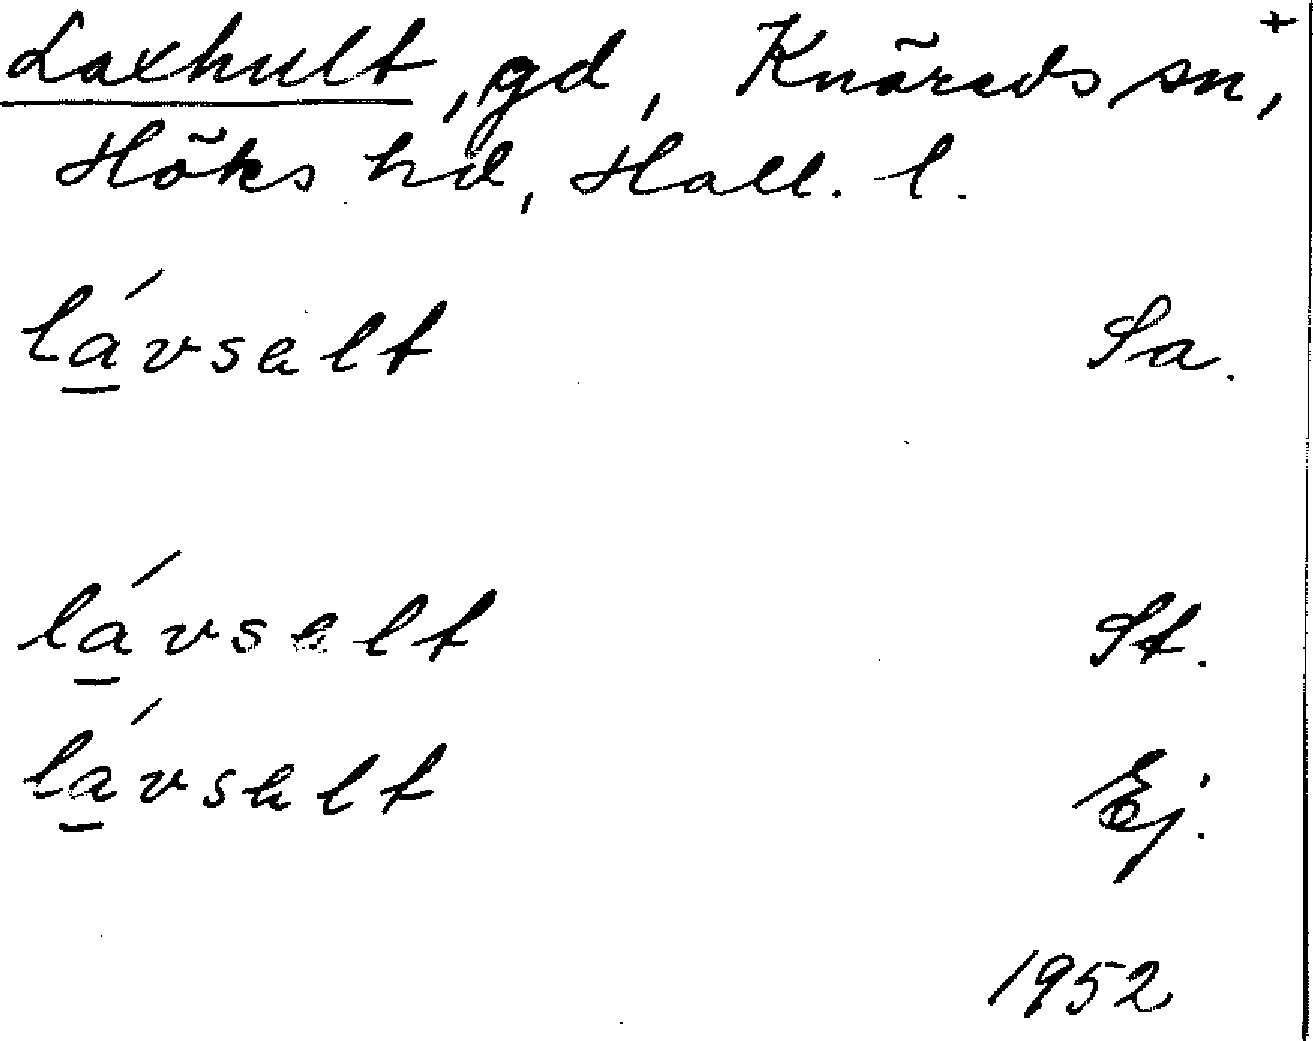 Laxhult, gd, Knäreds sn, +
Höks hd, Hall. l.
lávsalt Sa.
lávsalt St.
lávsalt Ej.
1952